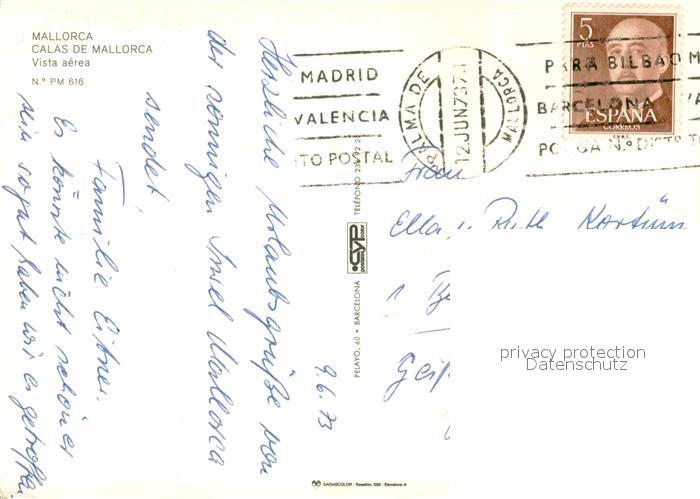 MALLORCA
CALAS DE MALLORCA
Vista aérea
N.° PM 616
9.6.73
Herzliche Urlaubsgrüße von
der sonnigen Insel Mallorca
sendet,
Familie Eitner.
Es könnte nicht schöner
sein so gut haben wir es getroffen
MADRID
VALENCIA
ITO POSTAL
PALMA DE MALLORCA
12.JUN.73
PARA BILBAO M
BARCELONA
PO
N.° DIST
5
PTAS
ESPAÑA
CORREOS
Frau
Ella u Ruth
privacy protection
Datenschutz
PELAYO, 60 • BARCELONA
CYP
TELÉFONO
SADAGCOLOR - Rosellón, - Barcelona